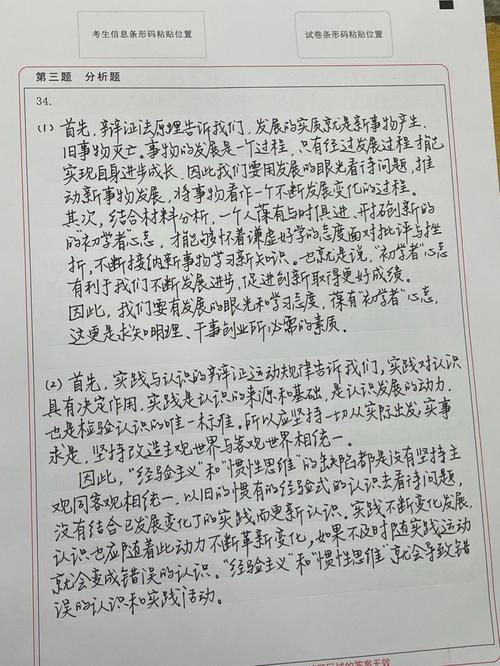 考生信息条形码粘贴位置
试卷条形码粘贴位置
第三题 分析题
34.
(1) 首先,辩证法原理告诉我们,发展的实质就是新事物产生、
旧事物灭亡。事物的发展是一个过程,只有经过发展过程才能
实现自身进步成长,因此我们要用发展的眼光看待问题,推
动新事物发展,将事物看作一个不断发展变化的过程。
其次,结合材料分析,一个人葆有与时俱进、开拓创新的
的"初学者"心态,才能够怀着谦虚好学的态度面对批评与挫
折,不断接纳新事物学习新知识。也就是说,"初学者"心态
有利于我们不断发展进步,促进创新取得更好成绩。
因此,我们要有发展的眼光和学习态度,葆有"初学者"心态,
这更是求知明理、干事创业所必需的素质。
(2) 首先,实践与认识的辩证运动规律告诉我们,实践对认识
具有决定作用,实践是认识的来源和基础,是认识发展的动力,
也是检验认识的唯一标准。所以应坚持一切从实际出发,实事
求是,坚持改造主观世界与客观世界相统一。
因此,"经验主义"和"惯性思维"的缺陷都是没有坚持主
观同客观相统一,以旧的惯有的经验式的认识去看待问题,
没有结合已发展变化了的实践而更新认识。实践不断变化发展,
认识也应随着此动力不断革新变化,如果不及时随实践运动
就会变成错误的认识。"经验主义"和"惯性思维"就会导致错
误的认识和实践活动。
区域的答案无效